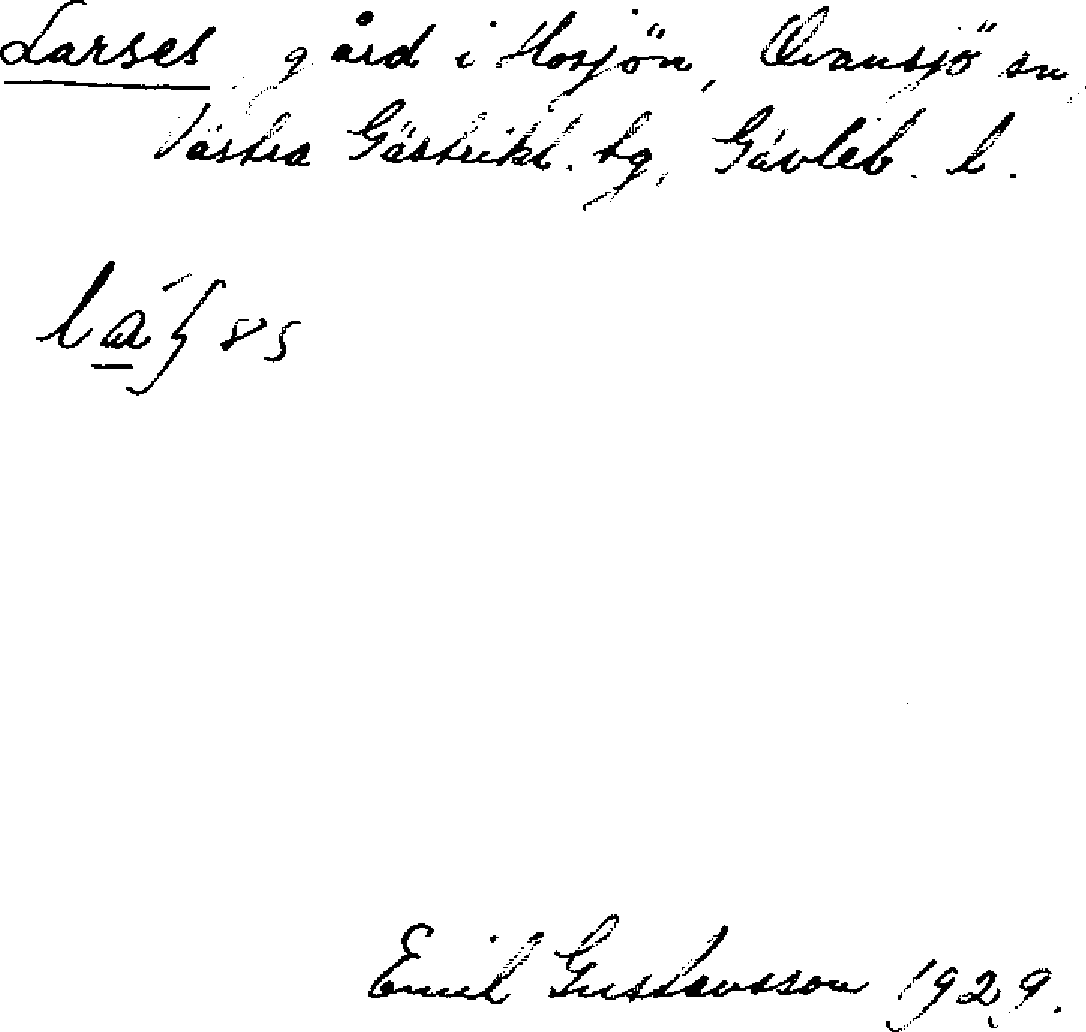 Larses, gård i Hosjön, Ovansjö sn,
Västra Gästrikl. tg, Gävleb. l.
Emil Gustavsson 1929.